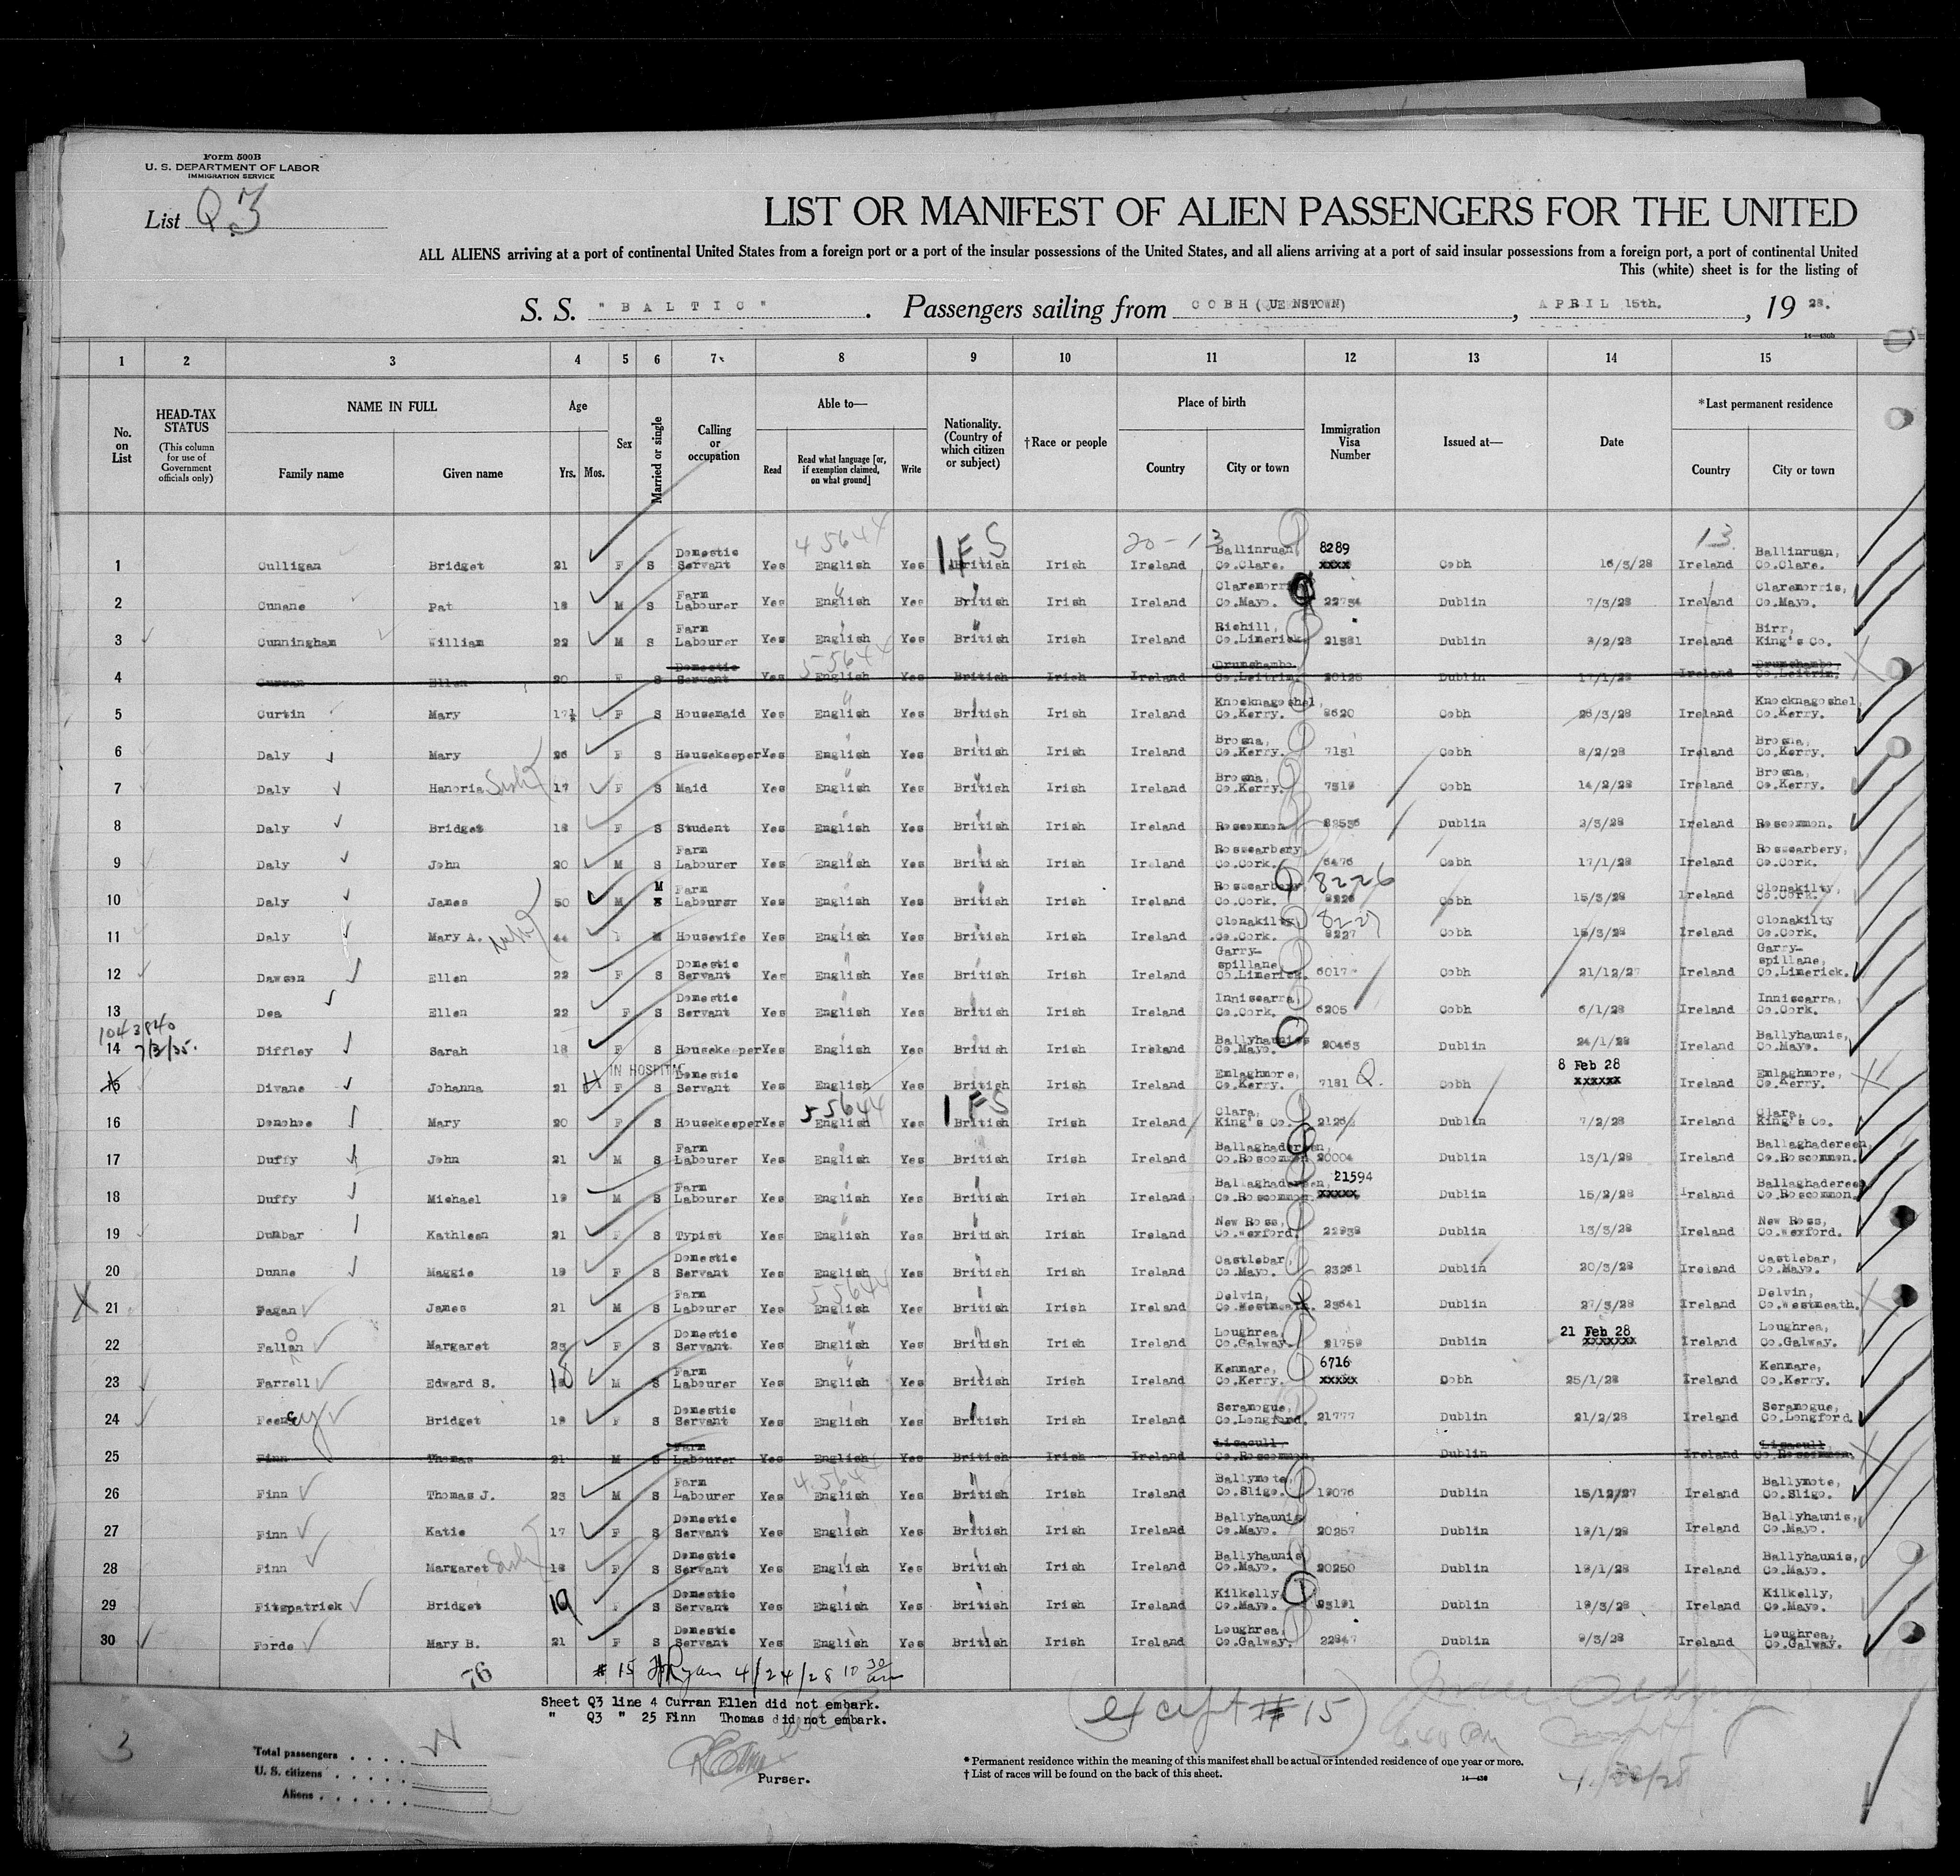 Form 500B
U. S. DEPARTMENT OF LABOR
IMMIGRATION SERVICE
List Q3
LIST OR MANIFEST OF ALIEN PASSENGERS FOR THE UNITED
ALL ALIENS arriving at a port of continental United States from a foreign port or a port of the insular possessions of the United States, and all aliens arriving at a port of said insular possessions from a foreign port, a port of continental United
This (white) sheet is for the listing of
S. S. "BALTIC". Passengers sailing from COBH (QUEENSTOWN), APRIL 15th., 1928.
1 2 3 4 5 6 7 8 9 10 11 12 13 14 15
No. on List
HEAD-TAX STATUS (This column for use of Government officials only)
NAME IN FULL Family name Given name
Age Yrs. Mos.
Sex
Married or single
Calling or occupation
Able to— Read Read what language [or, if exemption claimed, on what ground] Write
Nationality. (Country of which citizen or subject)
†Race or people
Place of birth Country City or town
Immigration Visa Number
Issued at—
Date
*Last permanent residence Country City or town
45644 IFS 20-13 13
1 Culligan Bridget 21 F S Domestic Servant Yes English Yes British Irish Ireland Ballinruan, Co.Clare. 8289 xxxx Cobh 16/3/28 Ireland Ballinruan, Co.Clare.
2 Cunane Pat 18 M S Farm Labourer Yes English Yes British Irish Ireland Claremorris Co.Mayo. 22734 Dublin 7/3/28 Ireland Claremorris, Co.Mayo.
3 Cunningham William 22 M S Farm Labourer Yes English Yes British Irish Ireland Richill, Co.Limerick 21381 Dublin /2/28 Ireland Birr, King's Co.
55644
4 Curran Ellen 20 F S Domestic Servant Yes English Yes British Irish Ireland Drumshambo, Co.Leitrim. 20125 Dublin 17/1/28 Ireland Drumshambo, Co.Leitrim.
5 Curtin Mary 17½ F S Housemaid Yes English Yes British Irish Ireland Knocknagoshel, Co.Kerry. 8620 Cobh 26/3/28 Ireland Knocknagoshel, Co.Kerry.
6 Daly Mary 26 F S Housekeeper Yes English Yes British Irish Ireland Brosna, Co.Kerry. 7131 Cobh 8/2/28 Ireland Brosna, Co.Kerry.
7 Daly Hanoria 17 F S Maid Yes English Yes British Irish Ireland Brosna, Co.Kerry. 7319 Cobh 14/2/28 Ireland Brosna, Co.Kerry.
8 Daly Bridget 18 F S Student Yes English Yes British Irish Ireland Roscommon 22536 Dublin 2/3/28 Ireland Roscommon.
9 Daly John 20 M S Farm Labourer Yes English Yes British Irish Ireland Rosscarbery Co.Cork. 6476 Cobh 17/1/28 Ireland Rosscarbery, Co.Cork.
10 Daly James 50 M M Farm Labourer Yes English Yes British Irish Ireland Rosscarbery, Co.Cork. 8226 8226 Cobh 15/3/28 Ireland Clonakilty, Co.Cork.
11 Daly Mary A. 44 F M Housewife Yes English Yes British Irish Ireland Clonakilty Co.Cork. 8227 8227 Cobh 15/3/28 Ireland Clonakilty Co.Cork.
12 Dawson Ellen 22 F S Domestic Servant Yes English Yes British Irish Ireland Garry-spillane, Co.Limerick. 6017 Cobh 21/12/27 Ireland Garry-spillane, Co.Limerick.
13 Dea Ellen 22 F S Domestic Servant Yes English Yes British Irish Ireland Inniscarra, Co.Cork. 6205 Cobh 6/1/28 Ireland Inniscarra, Co.Cork.
1043840
7/3/35.
14 Diffley Sarah 18 F S Housekeeper Yes English Yes British Irish Ireland Ballyhaunis Co.Mayo. 20463 Dublin 24/1/28 Ireland Ballyhaunis, Co.Mayo.
IN HOSPITAL 8 Feb 28
15 Divane Johanna 21 H F S Domestic Servant Yes English Yes British Irish Ireland Emlaghmore, Co.Kerry. 7181 Q. Cobh xxxxxx Ireland Emlaghmore, Co.Kerry.
55644 IFS
16 Donohoe Mary 20 F S Housekeeper Yes English Yes British Irish Ireland Clara, King's Co. 2126 Dublin 7/2/28 Ireland Clara, King's Co.
17 Duffy John 21 M S Farm Labourer Yes English Yes British Irish Ireland Ballaghadereen, Co.Roscommon 20004 Dublin 13/1/28 Ireland Ballaghadereen, Co.Roscommon.
18 Duffy Michael 19 M S Farm Labourer Yes English Yes British Irish Ireland Ballaghadereen, Co.Roscommon. 21594 xxxxx Dublin 15/2/28 Ireland Ballaghadereen Co.Roscommon.
19 Dunbar Kathleen 21 F S Typist Yes English Yes British Irish Ireland New Ross, Co.Wexford. 22939 Dublin 13/3/28 Ireland New Ross, Co.Wexford.
20 Dunne Maggie 19 F S Domestic Servant Yes English Yes British Irish Ireland Castlebar, Co.Mayo. 23261 Dublin 20/3/28 Ireland Castlebar, Co.Mayo.
55644
21 Fagan James 21 M S Farm Labourer Yes English Yes British Irish Ireland Delvin, Co.Westmeath. 23641 Dublin 27/3/28 Ireland Delvin, Co.Westmeath.
22 Fallon Margaret 23 F S Domestic Servant Yes English Yes British Irish Ireland Loughrea, Co.Galway. 21759 Dublin 21 Feb 28 xxxxxxx Ireland Loughrea, Co.Galway.
23 Farrell Edward S. 18 M S Farm Labourer Yes English Yes British Irish Ireland Kenmare, Co.Kerry. 6716 xxxxx Cobh 25/1/28 Ireland Kenmare, Co.Kerry.
24 Feeney Bridget 19 F S Domestic Servant Yes English Yes British Irish Ireland Scranogue, Co.Longford. 21777 Dublin 21/2/28 Ireland Scranogue, Co.Longford.
25 Finn Thomas 21 M S Farm Labourer Yes English Yes British Irish Ireland Lisacull, Co.Roscommon. Dublin Ireland Lisacull, Co.Roscommon.
45644
26 Finn Thomas J. 23 M S Farm Labourer Yes English Yes British Irish Ireland Ballymote, Co.Sligo. 19076 Dublin 15/12/27 Ireland Ballymote, Co.Sligo.
27 Finn Katie 17 F S Domestic Servant Yes English Yes British Irish Ireland Ballyhaunis Co.Mayo. 20257 Dublin 19/1/28 Ireland Ballyhaunis, Co.Mayo.
28 Finn Margaret 18 F S Domestic Servant Yes English Yes British Irish Ireland Ballyhaunis Co.Mayo. 20250 Dublin 19/1/28 Ireland Ballyhaunis, Co.Mayo.
29 Fitzpatrick Bridget 19 F S Domestic Servant Yes English Yes British Irish Ireland Kilkelly, Co.Mayo. 23191 Dublin 19/3/28 Ireland Kilkelly, Co.Mayo.
30 Forde Mary B. 21 F S Domestic Servant Yes English Yes British Irish Ireland Loughrea, Co.Galway. 22847 Dublin 9/3/28 Ireland Loughrea, Co.Galway.
76 # 15 Ryan 4/24/28 10 30 am
Sheet Q3 line 4 Curran Ellen did not embark.
" Q3 " 25 Finn Thomas did not embark.
(except # 15)
3
Total passengers . . . .
U. S. citizens . . . . .
Aliens . . . . . .
Purser.
* Permanent residence within the meaning of this manifest shall be actual or intended residence of one year or more.
† List of races will be found on the back of this sheet.